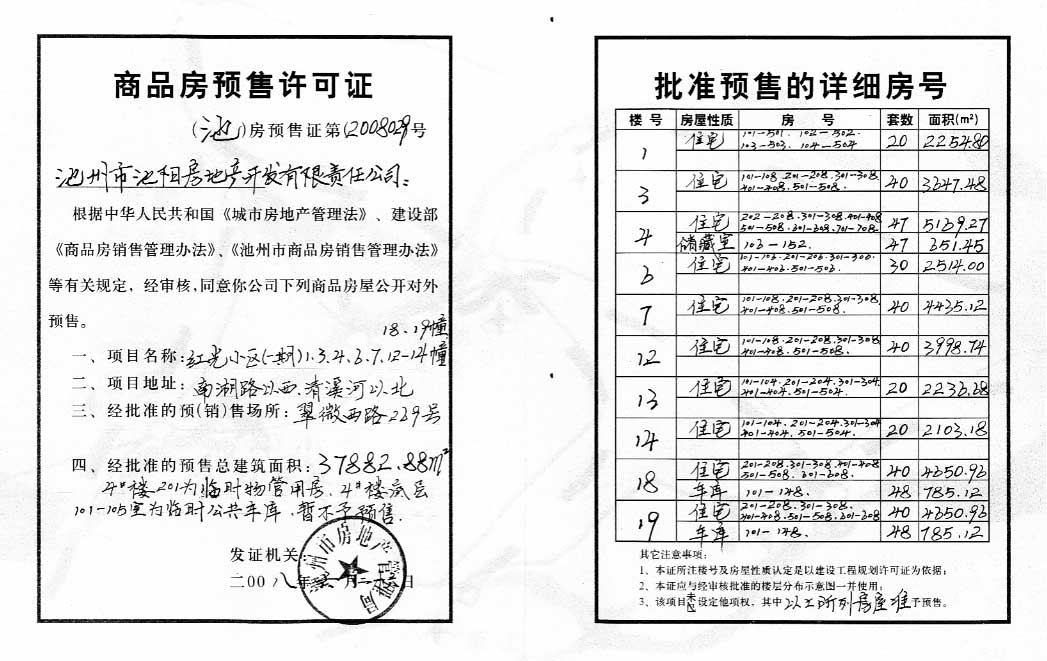 商品房预售许可证
(池)房预售证第(2008029号
池州市池阳房地产开发有限责任公司:
根据中华人民共和国《城市房地产管理法》、建设部
《商品房销售管理办法》、《池州市商品房销售管理办法》
等有关规定，经审核，同意你公司下列商品房屋公开对外
预售。
18、19幢
一、项目名称:红光小区(一期)1.3.4.6.7.12-14幢
二、项目地址:南湖路以西、清溪河以北
三、经批准的预(销)售场所:翠微西路239号
四、经批准的预售总建筑面积:37882.88m²
4#楼201为临时物管用房、4#楼底层
101-105室为临时公共车库、暂不予预售.
发证机关:
二00八年 月二 日
池州市房地产管理局
批准预售的详细房号
楼号 房屋性质 房号 套数 面积(m²)
1 住宅 101-501. 102-502. 103-503. 104-504 20 2254.80
3 住宅 101-108.201-208.301-308. 401-408.501-508. 40 3647.48
4 住宅 202-208.301-308.401-408 501-508.601-608.701-708. 47 5139.27
储藏室 103-152. 47 351.45
6 住宅 101-106.201-206.301-306. 401-406.501-506. 30 2514.00
7 住宅 101-108.201-208.301-308. 401-408.501-508. 40 4435.12
12 住宅 101-108.201-208.301-308 401-408.501-508. 40 3998.74
13 住宅 101-104.201-204.301-304. 401-404.501-504. 20 2233.28
14 住宅 101-104.201-204.301-304 401-404.501-504. 20 2103.18
18 住宅 201-208.301-308.401-408 501-508.601-608. 40 4350.93
车库 101-148. 48 785.12
19 住宅 201-208.301-308. 401-408.501-508.601-608 40 4350.93
车库 101-148. 48 785.12
其它注意事项:
1、本证所注楼号及房屋性质认定是以建设工程规划许可证为依据；
2、本证应与经审核批准的楼层分布示意图一并使用；
3、该项目未设定他项权，其中以上所列房屋准予预售。